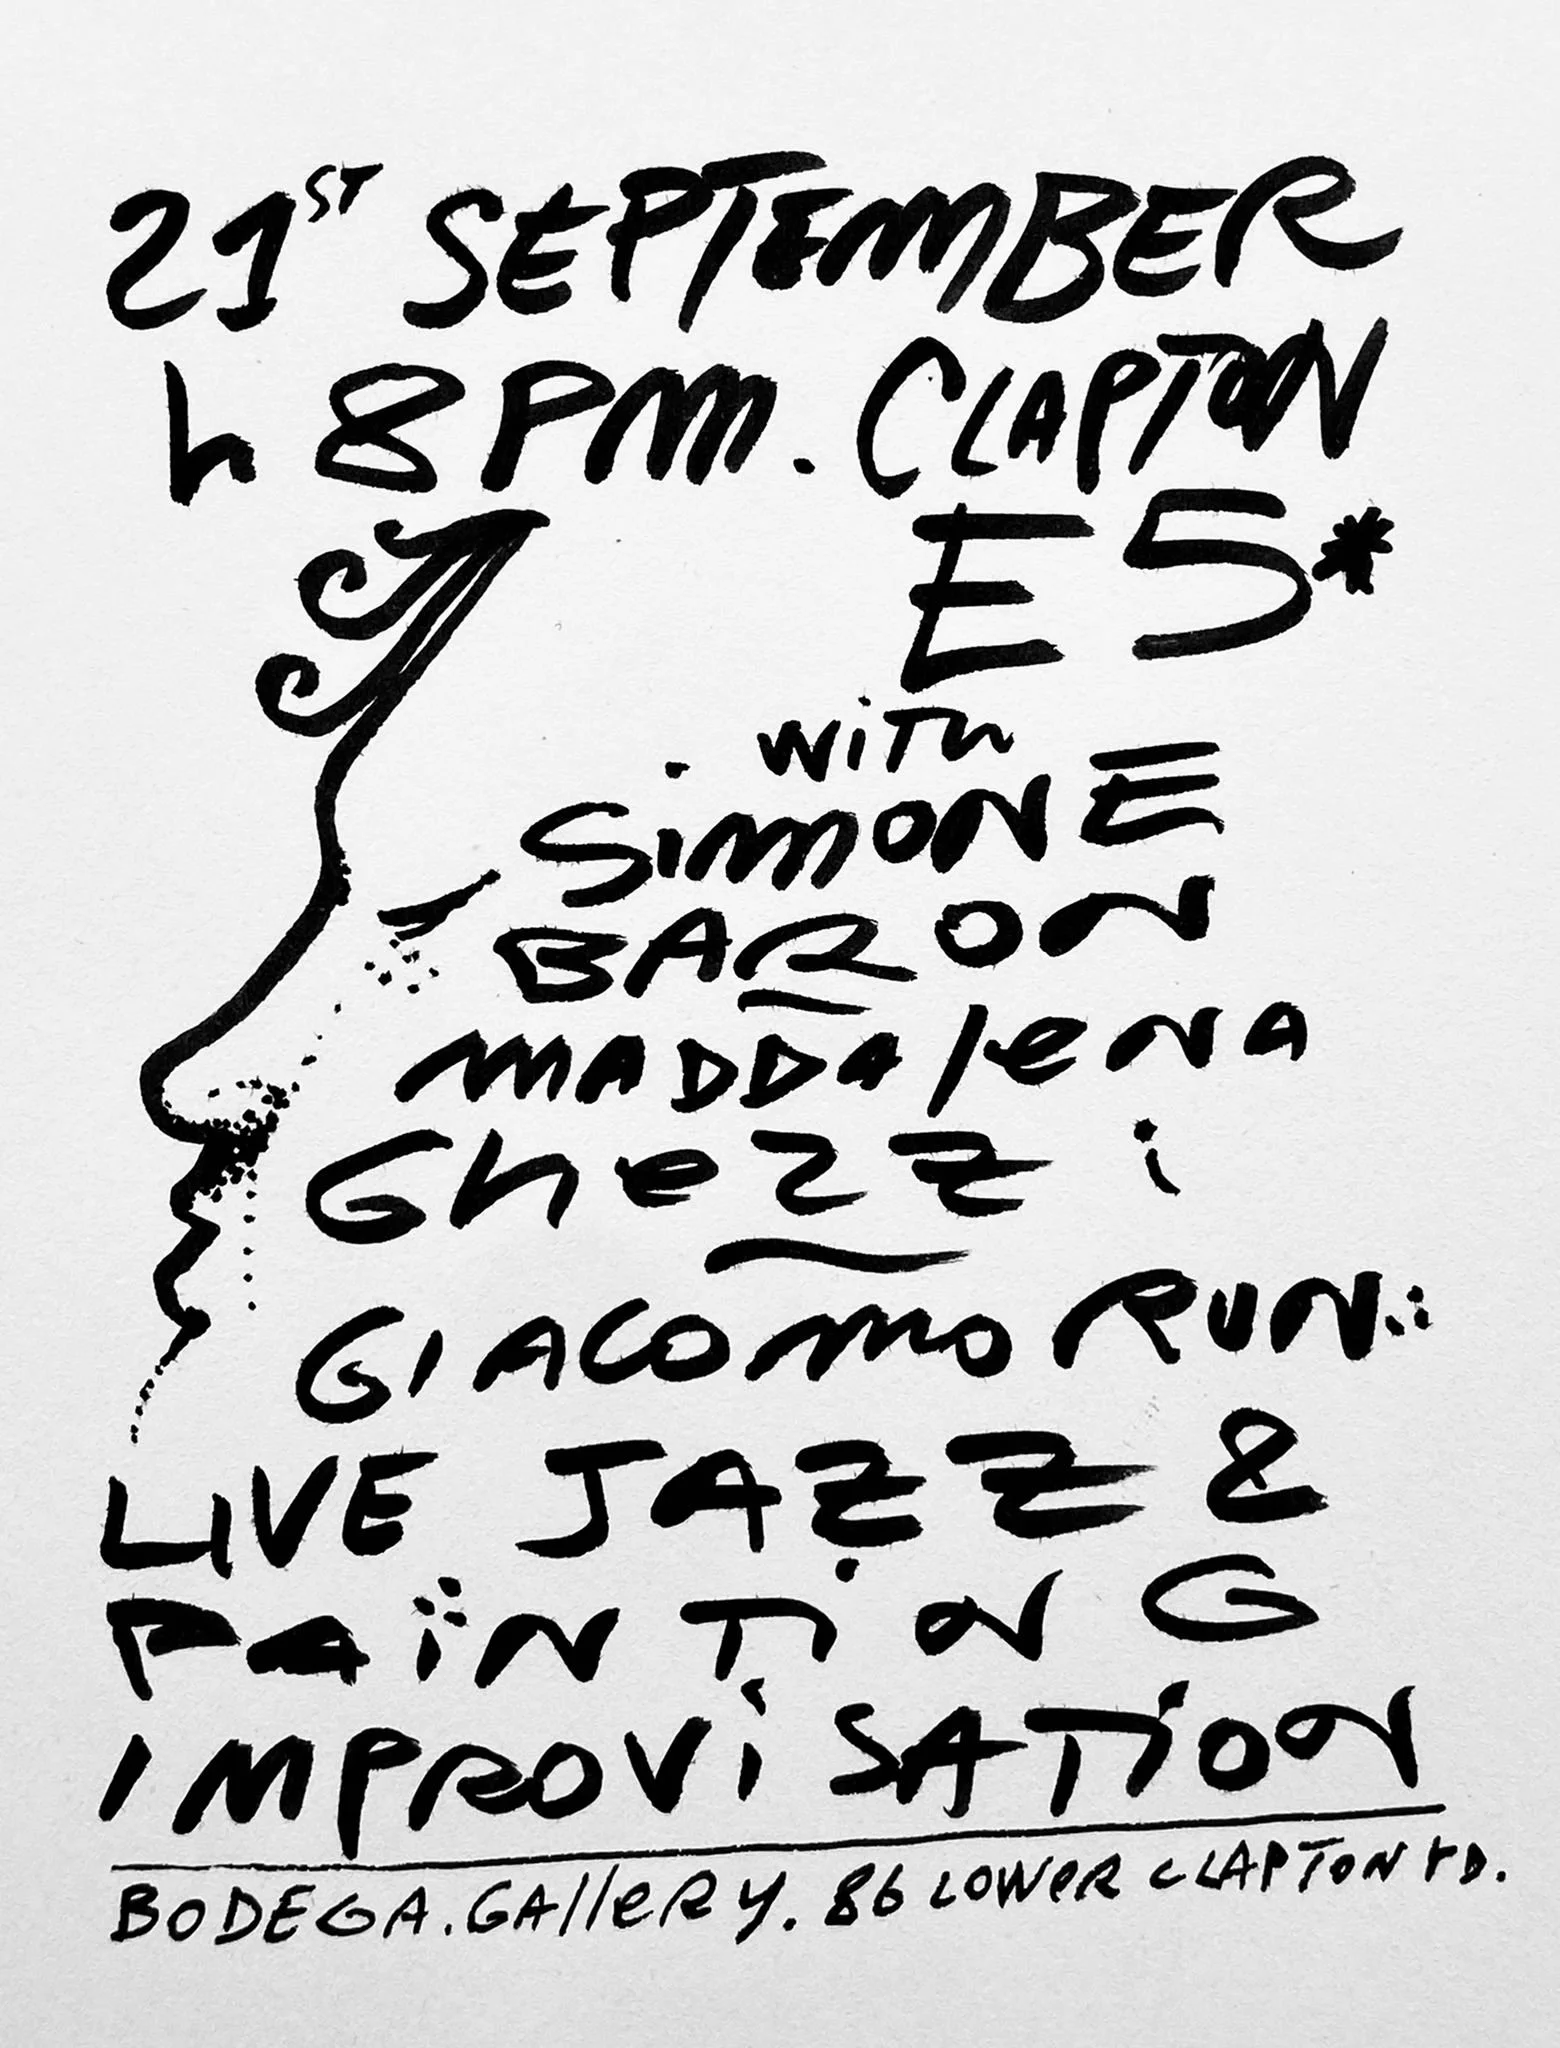 21ST SEPTEMBER
h 8PM. CLAPTON
E5*
WITH
SiMONE
BARON
MADDAlENA
GhezZi
GIACOMO RUN:
LIVE JAZZ &
PAiNTiNG
IMPROViSATiON
BODEGA.GAlleRy. 86 LOWeR CLAPTON rD.